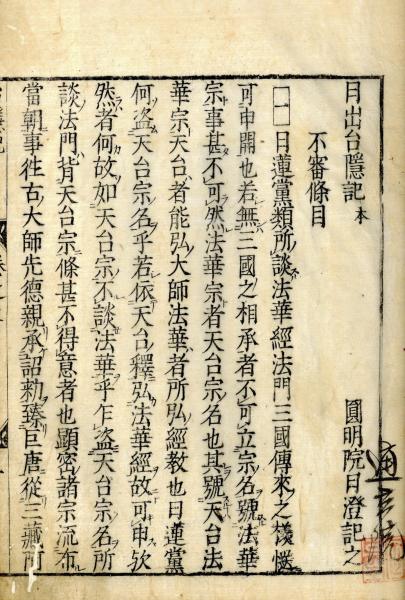 日出台隱記 本 圓明院日澄記之
不審條目
一日蓮黨類所談法華經法門三國傳來之樣慥
可申開也若無三國之相承者不可立宗名號法華
宗事甚不可然法華宗者天台宗名也其號天台法
華宗天台者能弘大師法華者所弘經教也日蓮黨
何盜天台宗名乎若依天台釋弘法華經故可申欤
然者何故如天台宗不談法華乎乍盜天台宗名所
談法門背天台宗條甚不得意者也顯密諸宗流布
當朝事徃古大師先德親承詔勅臻巨唐從三藏